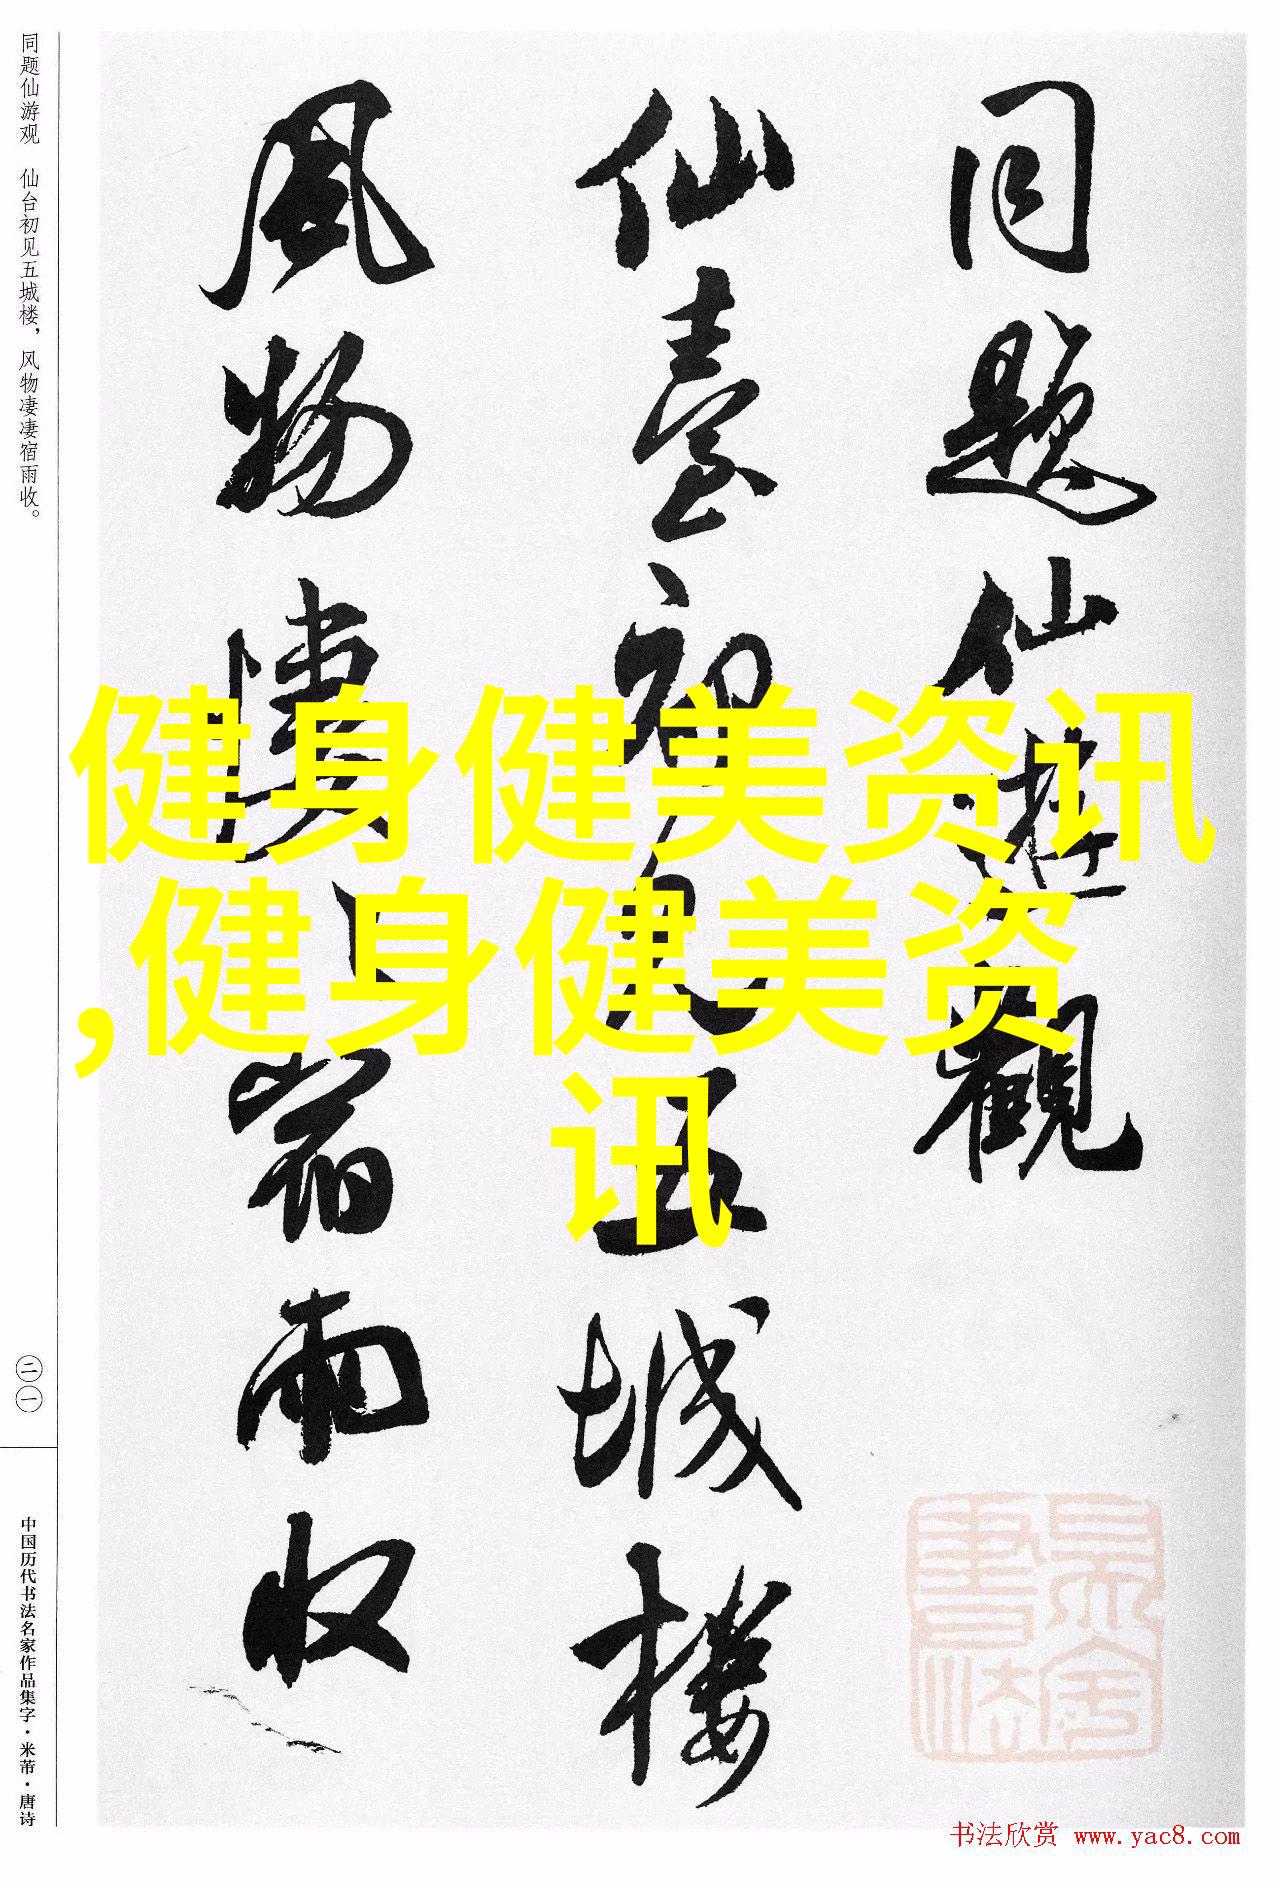 同题仙遊觀
仙臺初见五城楼
風物凄〻宿雨收
健身健美资讯
,健身健美资
讯
同题仙游观　仙台初见五城楼，风物凄凄宿雨收。
二一
中国历代书法名家作品集字·米芾·唐诗
书法欣赏 www.yac8.com